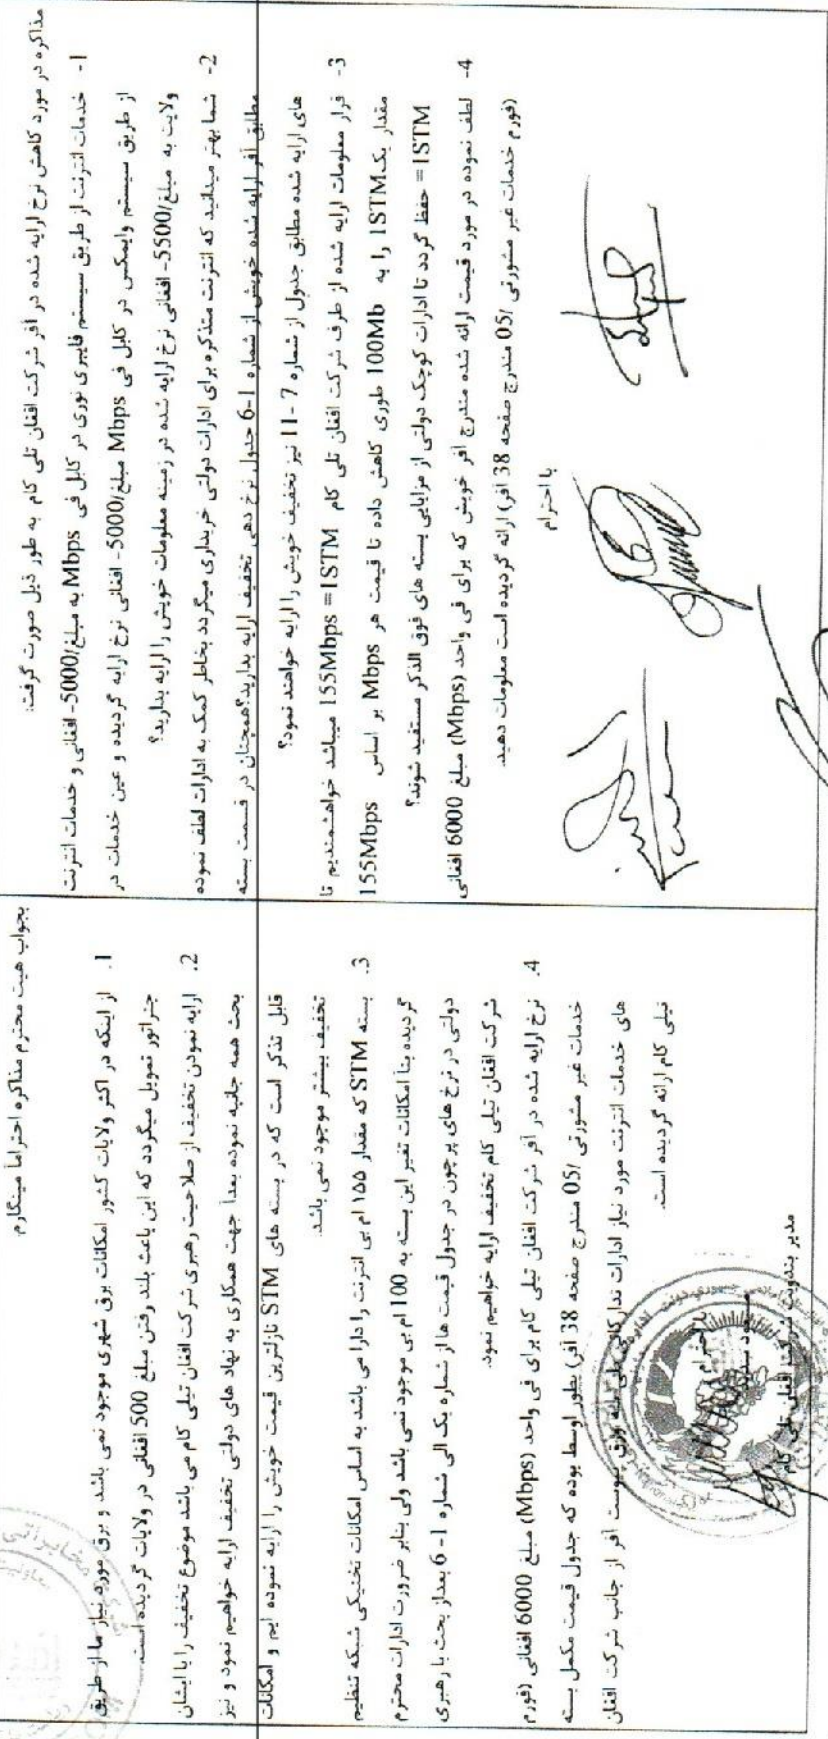 مذاکره در مورد کاهش نرخ ارایه شده در آفر شرکت افغان تلی کام به طور ذیل صورت گرفت:
1- خدمات انترنت از طریق سیستم فایبری نوری در کابل فی Mbps به مبلغ/5000- افغانی و خدمات انترنت
از طریق سیستم وایمکس در کابل فی Mbps مبلغ/5000- افغانی نرخ ارایه گردیده و عین خدمات در
ولایت به مبلغ/5500- افغانی نرخ ارایه شده در زمینه معلومات خویش را ارایه بدارید؟
2- شما بهتر میدانید که انترنت متذکره برای ادارات دولتی خریداری میگردد بخاطر کمک به ادارات لطف نموده
مطابق آفر ارایه شده خویش از شماره 1-6 جدول نرخ دهی تخفیف ارایه بدارید؟همچنان در قسمت بسته
های ارایه شده مطابق جدول از شماره 7 -11 نیز تخفیف خویش را ارایه خواهند نمود؟
3- قرار معلومات ارایه شده از طرف شرکت افغان تلی کام 1STM = 155Mbps میباشد خواهشمندیم تا
مقدار یک1STM را به 100Mb طوری کاهش داده تا قیمت هر Mbps بر اساس 155Mbps
=1STM حفظ گردد تا ادارات کوچک دولتی از مزایایی بسته های فوق الذکر مستفید شوند؟
4- لطف نموده در مورد قیمت ارائه شده مندرج آفر خویش که برای فی واحد (Mbps) مبلغ 6000 افغانی
(فورم خدمات غیر مشورتی /05 مندرج صفحه 38 آفر) ارائه گردیده است معلومات دهید.
با احترام
بجواب هیت محترم مذاکره احتراماً مینگارم.
1. از اینکه در اکثر ولایات کشور امکانات برق شهری موجود نمی باشد و برق مورد نیاز ما از طریق
جنراتور تمویل میگردد که این باعث بلند رفتن مبلغ 500 افغانی در ولایات گردیده است.
2. ارایه نمودن تخفیف از صلاحیت رهبری شرکت افغان تیلی کام می باشد موضوع تخفیف را با ایشان
بحث همه جانبه نموده بعداً جهت همکاری به نهاد های دولتی تخفیف ارایه خواهیم نمود و نیز
قابل تذکر است که در بسته های STM نازلترین قیمت خویش را ارایه نموده ایم و امکانات
تخفیف بیشتر موجود نمی باشد.
3. بسته STM که مقدار ۱۵۵ ام بی انترنت را دارا می باشد به اساس امکانات تخنیکی شبکه تنظیم
گردیده بناً امکانات تغیر این بسته به 100 ام بی موجود نمی باشد ولی بنابر ضرورت ادارات محترم
دولتی در نرخ های پرچون در جدول قیمت ها از شماره یک الی شماره 1- 6 بعداز بحث با رهبری
شرکت افغان تیلی کام تخفیف ارایه خواهیم نمود.
4. نرخ ارایه شده در آفر شرکت افغان تیلی کام برای فی واحد (Mbps) مبلغ 6000 افغانی (فورم
خدمات غیر مشورتی /05 مندرج صفحه 38 آفر) بطور اوسط بوده که جدول قیمت مکمل بسته
های خدمات انترنت مورد نیاز ادارات تدارکاتی ورق پیوست آفر از جانب شرکت افغان
تیلی کام ارائه گردیده است.
با احترام
مدیر بندوبست شرکت افغان تلی کام